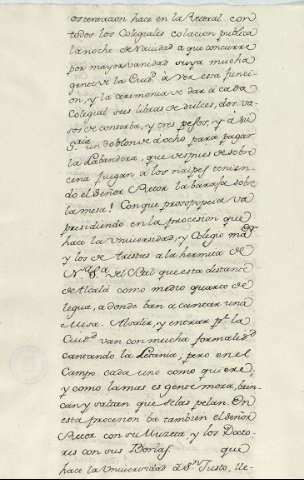 ostentacion hace en la Rectoral con
todos los Colegiales colacion publica
la noche de Navidad a que concurre
por mayor vanidad suya mucha
gente de la Ciud.ᵈ à ver esta funcion
y la ceremonia de dar à cada
Colegial seis libras de dulces, dos va-
sos de conserva, y tres pesos, y à su
un doblon de à ocho para pagar
la Labandera, que despues de sobre
cena juegan à los naipes tenien-
do el Señor Rector la baraja sobre
la mesa! Con que prosopopeia va
presidiendo en la procesion que
hace la Universidad, y Colegio maᵒʳ
y los de Artistas a la hermita de
Nʳᵃ Sᵃ del Val que esta distante
de Alcalá como medio quarto de
legua, a donde ban a cantar una
Misa. Al salir, y entrar pʳ la
Ciuᵈ van con mucha formalidᵈ
cantando la Letania, pero en el
Campo cada uno como quiere,
y como la mas es gente moza, brin-
can y saltan que se las pelan. En
esta procesion ba tambien el Señor
Rector con su Muzeta y los Docto-
res con sus Borlas. que
hace la Universidad a Sⁿ Justo, lle-